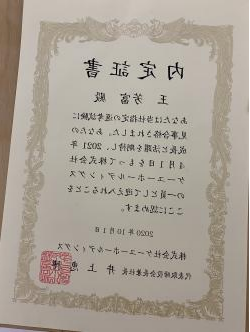 内定証書
王 芳富 殿
あなたは当社指定の選考試験に
見事合格されました。あなたの
成長と活躍を期待し、2021年
4月1日をもって株式会社
ケーユーホールディングス
の一員として迎え入れることを
ここに認めます。
2020年10月1日
株式会社ケーユーホールディングス
代表取締役会長兼社長 井上恵博